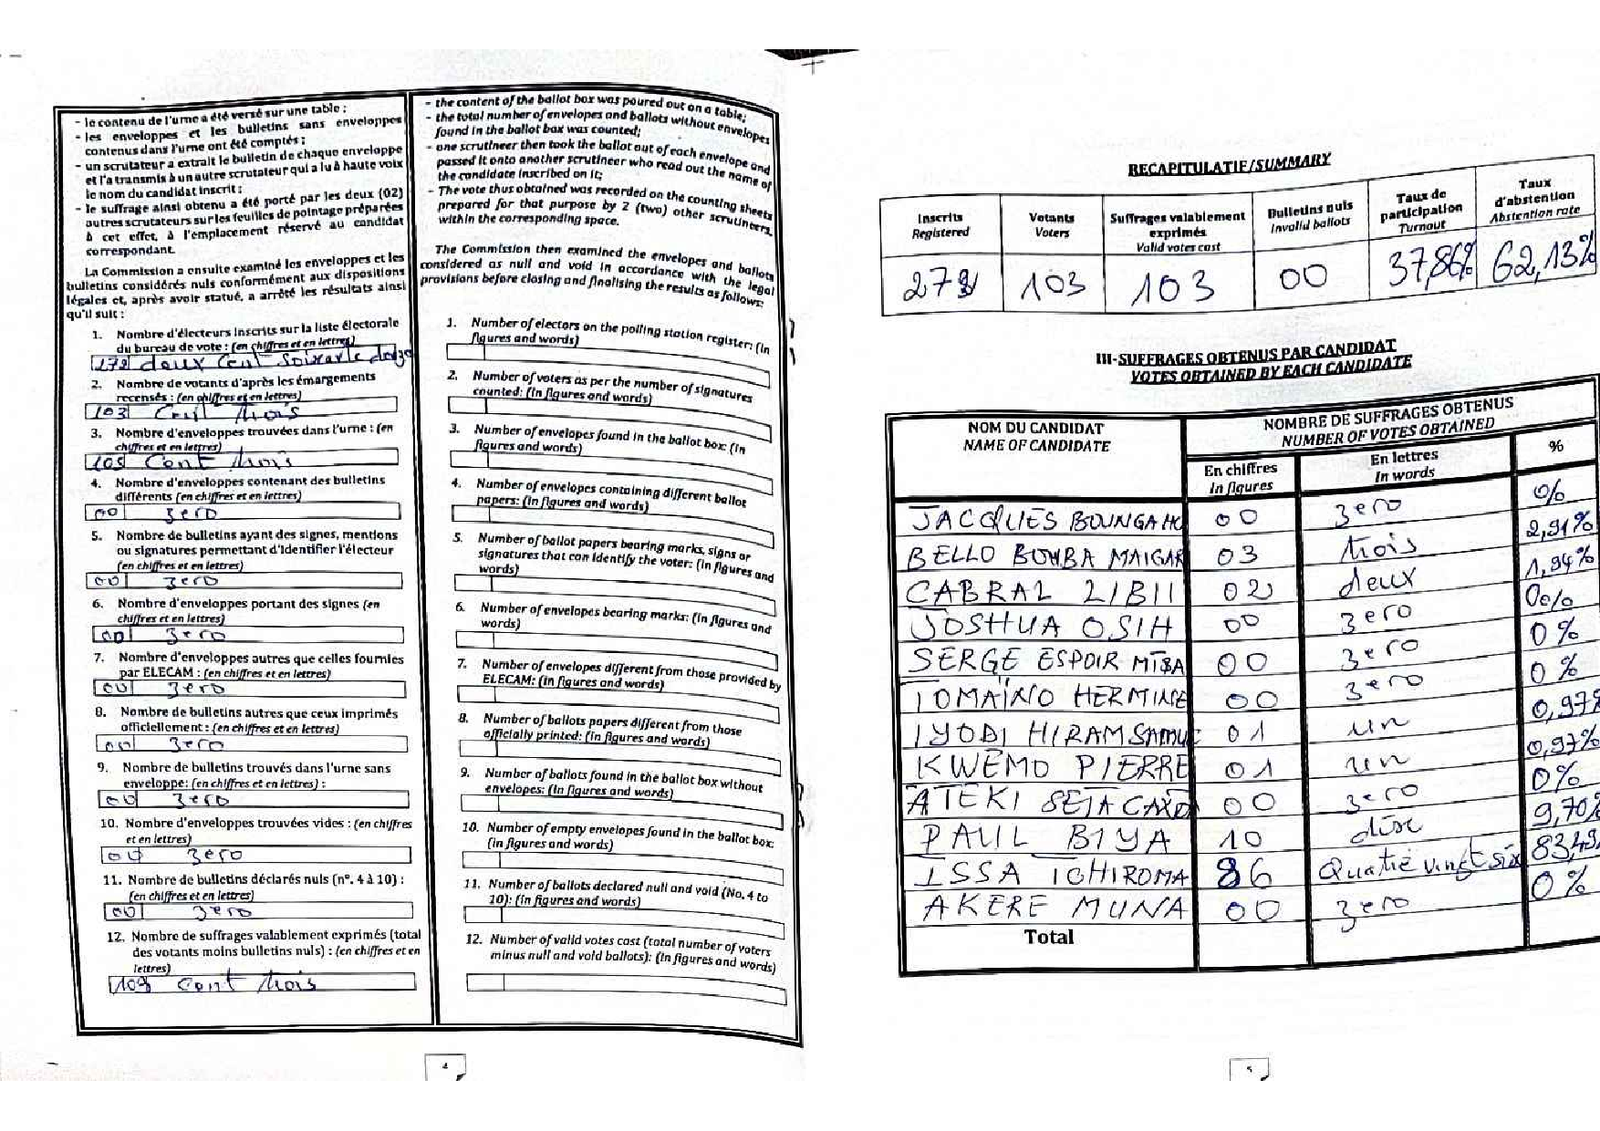 - le contenu de l'urne a été versé sur une table ;
- les enveloppes et les bulletins sans enveloppes
contenus dans l'urne ont été comptés ;
- un scrutateur a extrait le bulletin de chaque enveloppe
et l'a transmis à un autre scrutateur qui a lu à haute voix
le nom du candidat inscrit ;
- le suffrage ainsi obtenu a été porté par les deux (02)
autres scrutateurs sur les feuilles de pointage préparées
à cet effet, à l'emplacement réservé au candidat
correspondant.
La Commission a ensuite examiné les enveloppes et les
bulletins considérés nuls conformément aux dispositions
légales et, après avoir statué, a arrêté les résultats ainsi
qu'il suit :
1. Nombre d'électeurs inscrits sur la liste électorale
du bureau de vote : (en chiffres et en lettres)
272 deux Cent Soixante douze
2. Nombre de votants d'après les émargements
recensés : (en chiffres et en lettres)
103 Cent trois
3. Nombre d'enveloppes trouvées dans l'urne : (en
chiffres et en lettres)
103 Cent trois
4. Nombre d'enveloppes contenant des bulletins
différents (en chiffres et en lettres)
00 zero
5. Nombre de bulletins ayant des signes, mentions
ou signatures permettant d'identifier l'électeur
(en chiffres et en lettres)
00 zero
6. Nombre d'enveloppes portant des signes (en
chiffres et en lettres)
00 zero
7. Nombre d'enveloppes autres que celles fournies
par ELECAM : (en chiffres et en lettres)
00 zero
8. Nombre de bulletins autres que ceux imprimés
officiellement : (en chiffres et en lettres)
00 zero
9. Nombre de bulletins trouvés dans l'urne sans
enveloppe: (en chiffres et en lettres) :
00 zero
10. Nombre d'enveloppes trouvées vides : (en chiffres
et en lettres)
00 zero
11. Nombre de bulletins déclarés nuls (n°. 4 à 10) :
(en chiffres et en lettres)
00 zero
12. Nombre de suffrages valablement exprimés (total
des votants moins bulletins nuls) : (en chiffres et en
lettres)
103 Cent trois
- the content of the ballot box was poured out on a table;
- the total number of envelopes and ballots without envelopes
found in the ballot box was counted;
- one scrutineer then took the ballot out of each envelope and
passed it onto another scrutineer who read out the name of
the candidate inscribed on it;
- The vote thus obtained was recorded on the counting sheets
prepared for that purpose by 2 (two) other scrutineers,
within the corresponding space.
The Commission then examined the envelopes and ballots
considered as null and void in accordance with the legal
provisions before closing and finalising the results as follows:
1. Number of electors on the polling station register: (in
figures and words)
2. Number of voters as per the number of signatures
counted: (in figures and words)
3. Number of envelopes found in the ballot box: (in
figures and words)
4. Number of envelopes containing different ballot
papers: (in figures and words)
5. Number of ballot papers bearing marks, signs or
signatures that can identify the voter: (in figures and
words)
6. Number of envelopes bearing marks: (in figures and
words)
7. Number of envelopes different from those provided by
ELECAM: (in figures and words)
8. Number of ballots papers different from those
officially printed: (in figures and words)
9. Number of ballots found in the ballot box without
envelopes: (in figures and words)
10. Number of empty envelopes found in the ballot box:
(in figures and words)
11. Number of ballots declared null and void (No. 4 to
10): (in figures and words)
12. Number of valid votes cast (total number of voters
minus null and void ballots): (in figures and words)
4
RECAPITULATIF/SUMMARY
Inscrits Registered
Votants Voters
Suffrages valablement exprimés Valid votes cast
Bulletins nuls Invalid ballots
Taux de participation Turnout
Taux d'abstention Abstention rate
272 103 103 00 37,86% 62,13%
III-SUFFRAGES OBTENUS PAR CANDIDAT
VOTES OBTAINED BY EACH CANDIDATE
NOM DU CANDIDAT
NAME OF CANDIDATE
NOMBRE DE SUFFRAGES OBTENUS
NUMBER OF VOTES OBTAINED
En chiffres In figures
En lettres In words
%
JACQUES BOUNGAHO 00 zero 0%
BELLO BOUBA MAIGAR 03 trois 2,91%
CABRAL LIBII 02 deux 1,94%
JOSHUA OSIH 00 zero 0%
SERGE ESPOIR MTBA 00 zero 0%
TOMAÏNO HERMINE 00 zero 0%
IYODI HIRAM SAMUE 01 un 0,97%
KWEMO PIERRE 01 un 0,97%
ATEKI SETA CAXD 00 zero 0%
PAUL BIYA 10 dix 9,70%
ISSA TCHIROMA 86 Quatre vingt six 83,49
AKERE MUNA 00 zero 0%
Total
5